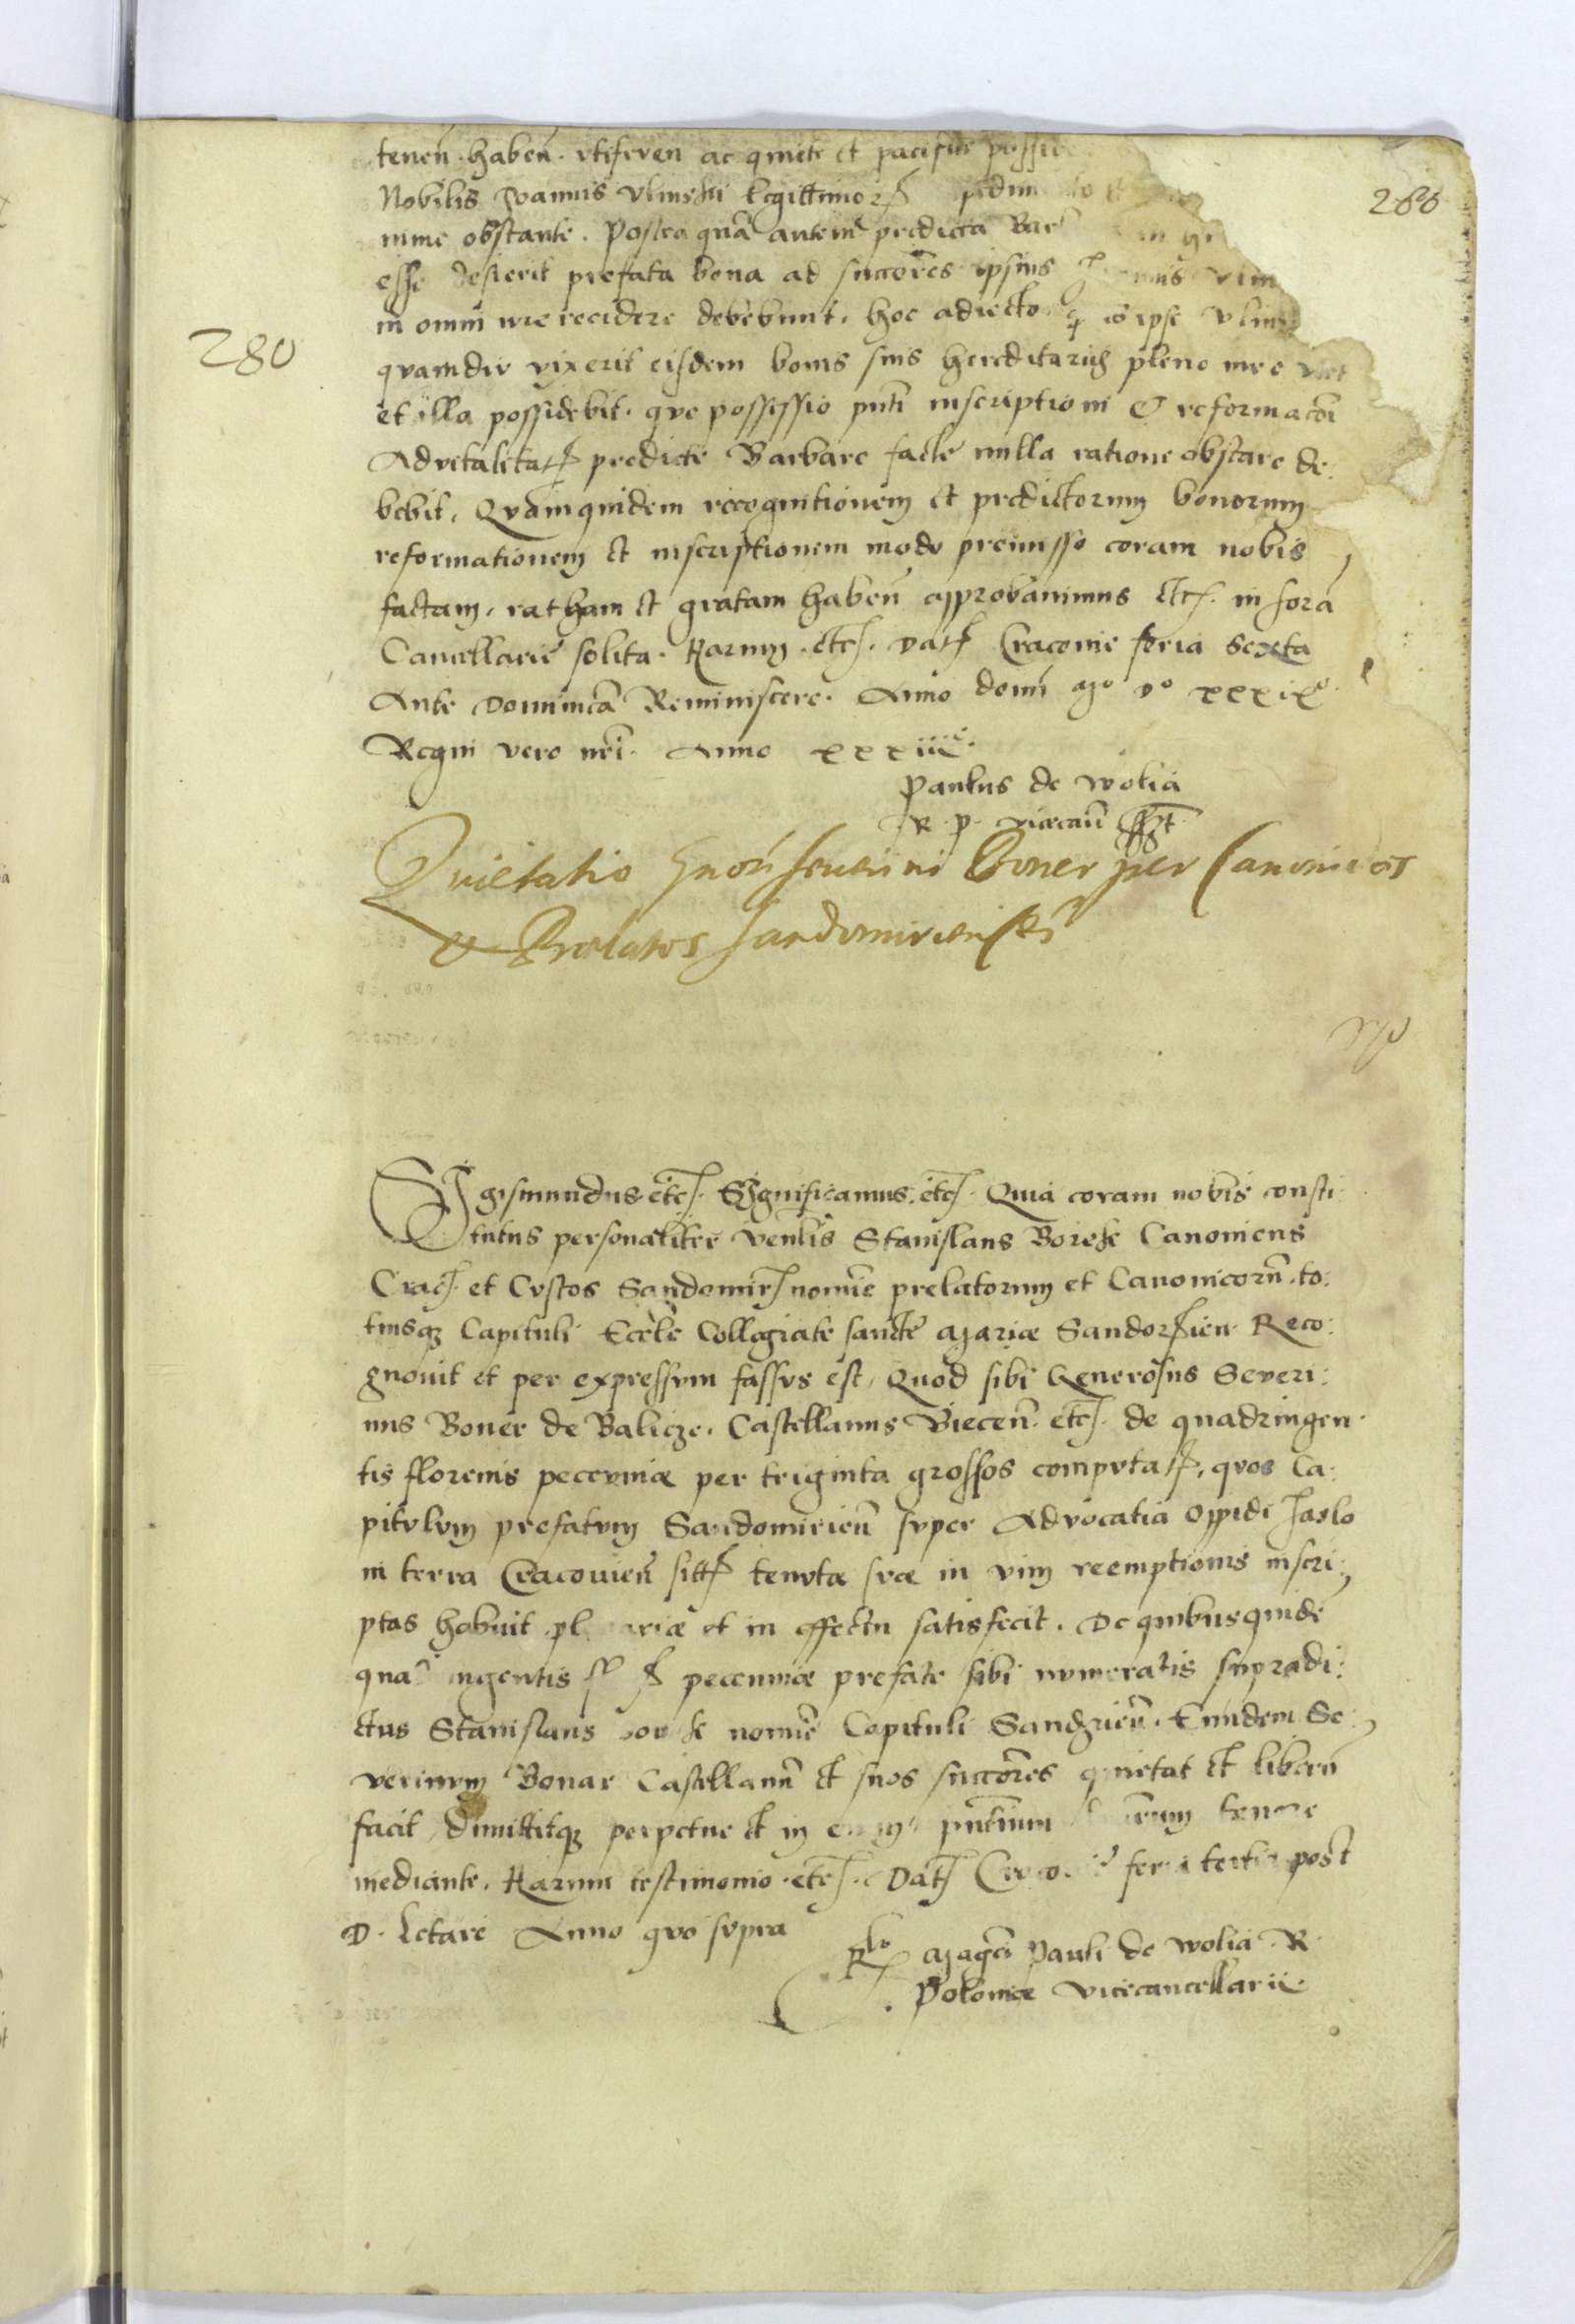 tenen̄. haben̄. vtifruen ac quiete et pacifice possid
Nobilis Ioannis Vlinski legittimor
nime obstante. Postea quā autem predicta Bar
esse desierit prefata bona ad succōres ipsius
in omni iure recidere debebunt. hoc adiecto q ipse Vlins
280
280
quamdiu vixerit eisdem bonis suis hereditariis pleno iure
et illa possidebit. que possessio pn̄ti inscriptioni et reformacōi
Advitalitat predicte Barbare facte nulla ratione obstare de:
bebit. Quamquidem recognitionem et predictorum bonorum
reformationem et inscriptionem modo premisso coram nobis
factam, ratham et gratam haben̄ approbauimus etc. in forā
Cancellarie solita. Harum. etc. Dat Cracouie feria Sexta
Ante Dominicā Reminiscere. Anno domi Mº Vº xxxixº
Regni vero nr̄i. Anno xxxiiiº.
Paulus de Wolia
R. P. vicecan̄ sszt
Quietatio Gnosi Seuerini Boner per Canonicos
& Prælatos Sandomirienses
Sigismundus. etc. Significamus. etc. Quia coram nobis consti:
tutus personaliter Ven̄lis Stanislaus Borek Canonicus
Crac. et Custos Sandomir nomine prelatorum et Canonicorū. to:
tiusq Capituli Eccl̄e Collegiate sancte Mariæ Sandomirien Reco:
gnouit et per expressum fassus est, Quod sibi Generosus Seueri:
nus Boner de Balicze. Castellanus Biecen̄. etc. de quadringen:
tis florenis pecuniæ per triginta grossos computat, quos Ca:
pitulum prefatum Sandomirien̄ super Aduocatia Oppidi Jaslo
in terra Cracouien̄ sitt tenutæ suæ in vim reemptionis inscri:
ptas habuit pl ariæ et in effectu satisfecit. De quibusquidē
qua ingentis fl pecuniæ prefate sibi numeratis supradi:
ctus Stanislaus Borek nomīe Capituli Sandomirien̄. Eundem Se:
uerinum Bonar Castellanū et suos succōres quietat et liberū
facit, dimittitq perpetue et in euum pn̄tium tenore
mediante. Harum testimonio. etc. Dat Cracouie feria tertia post
D. Letare Anno quo supra
Rlo Magci Pauli de Wolia. R.
Poloniæ Vicecancellarii.